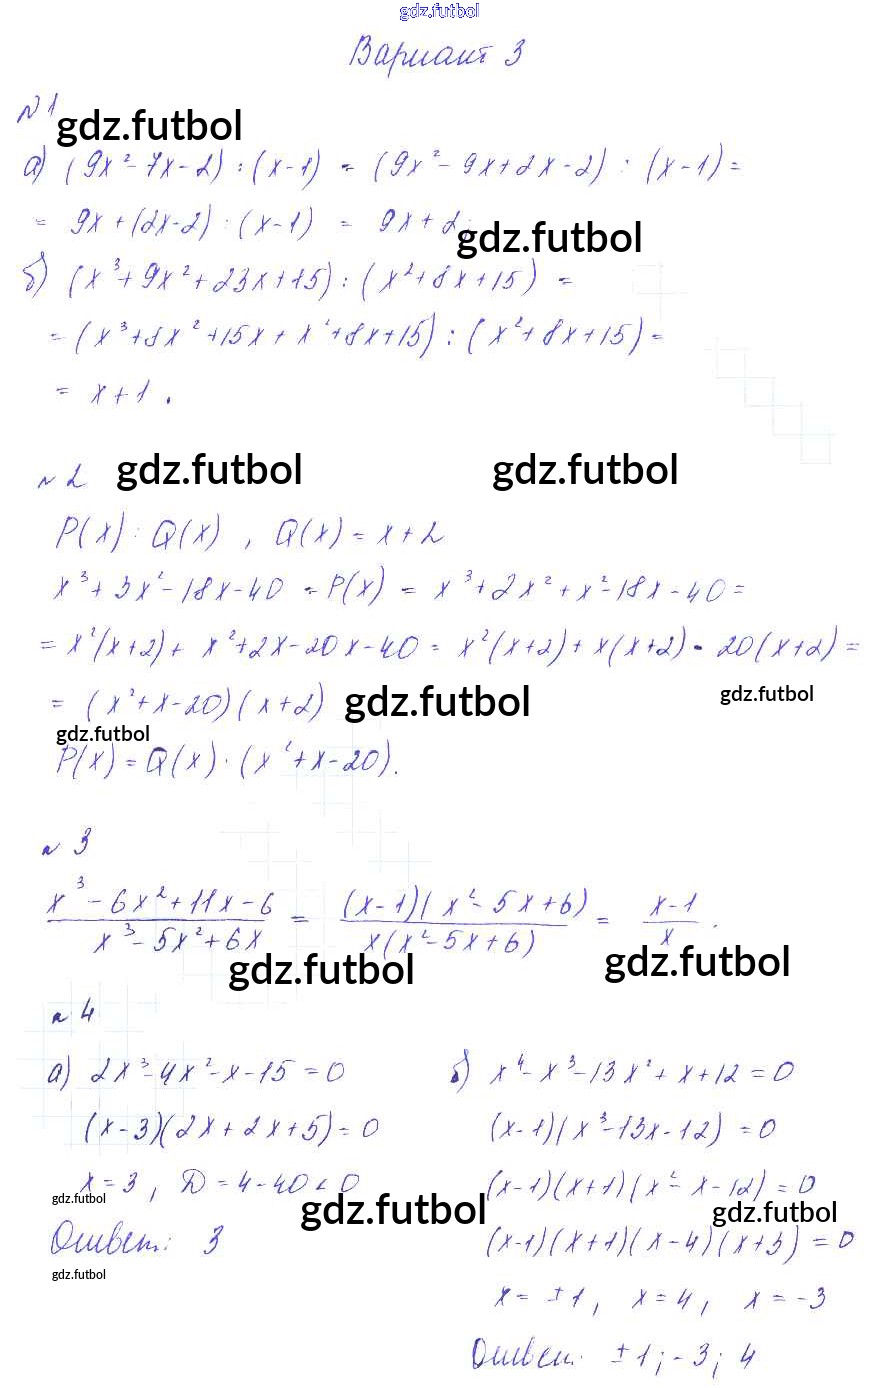 gdz.futbol
Вариант 3
№1
gdz.futbol
а) (9x² - 7x - 2) : (x - 1) = (9x² - 9x + 2x - 2) : (x - 1) =
= 9x + (2x - 2) : (x - 1) = 9x + 2;
gdz.futbol
б) (x³ + 9x² + 23x + 15) : (x² + 8x + 15) =
= (x³ + 8x² + 15x + x² + 8x + 15) : (x² + 8x + 15) =
= x + 1 .
№2 gdz.futbol gdz.futbol
P(x) : Q(x) , Q(x) = x + 2
x³ + 3x² - 18x - 40 = P(x) = x³ + 2x² + x² - 18x - 40 =
= x²(x + 2) + x² + 2x - 20x - 40 = x²(x + 2) + x(x + 2) - 20(x + 2) =
= (x² + x - 20)(x + 2) gdz.futbol gdz.futbol
gdz.futbol
P(x) = Q(x) · (x² + x - 20).
№3
(x³ - 6x² + 11x - 6)/(x³ - 5x² + 6x) = ((x - 1)(x² - 5x + 6))/(x(x² - 5x + 6)) = (x - 1)/x .
gdz.futbol gdz.futbol
№4
а) 2x³ - 4x² - x - 15 = 0 б) x⁴ - x³ - 13x² + x + 12 = 0
(x - 3)(2x + 2x + 5) = 0 (x - 1)(x³ - 13x - 12) = 0
x = 3 , D = 4 - 40 < 0 (x - 1)(x + 1)(x² - x - 12) = 0
gdz.futbol gdz.futbol gdz.futbol
Ответ: 3 (x - 1)(x + 1)(x - 4)(x + 3) = 0
gdz.futbol
x = ±1 , x = 4 , x = -3
Ответ: ±1 ; -3 ; 4